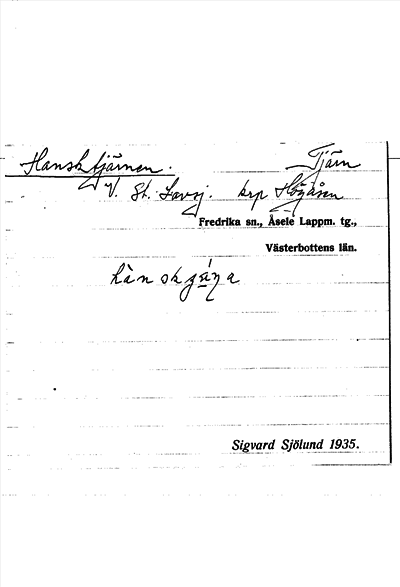 Hansktjärnen. Tjärn
v. St. Lavsj. krp Högåsen
Fredrika sn., Åsele Lappm. tg.,
Västerbottens län.
Sigvard Sjölund 1935.